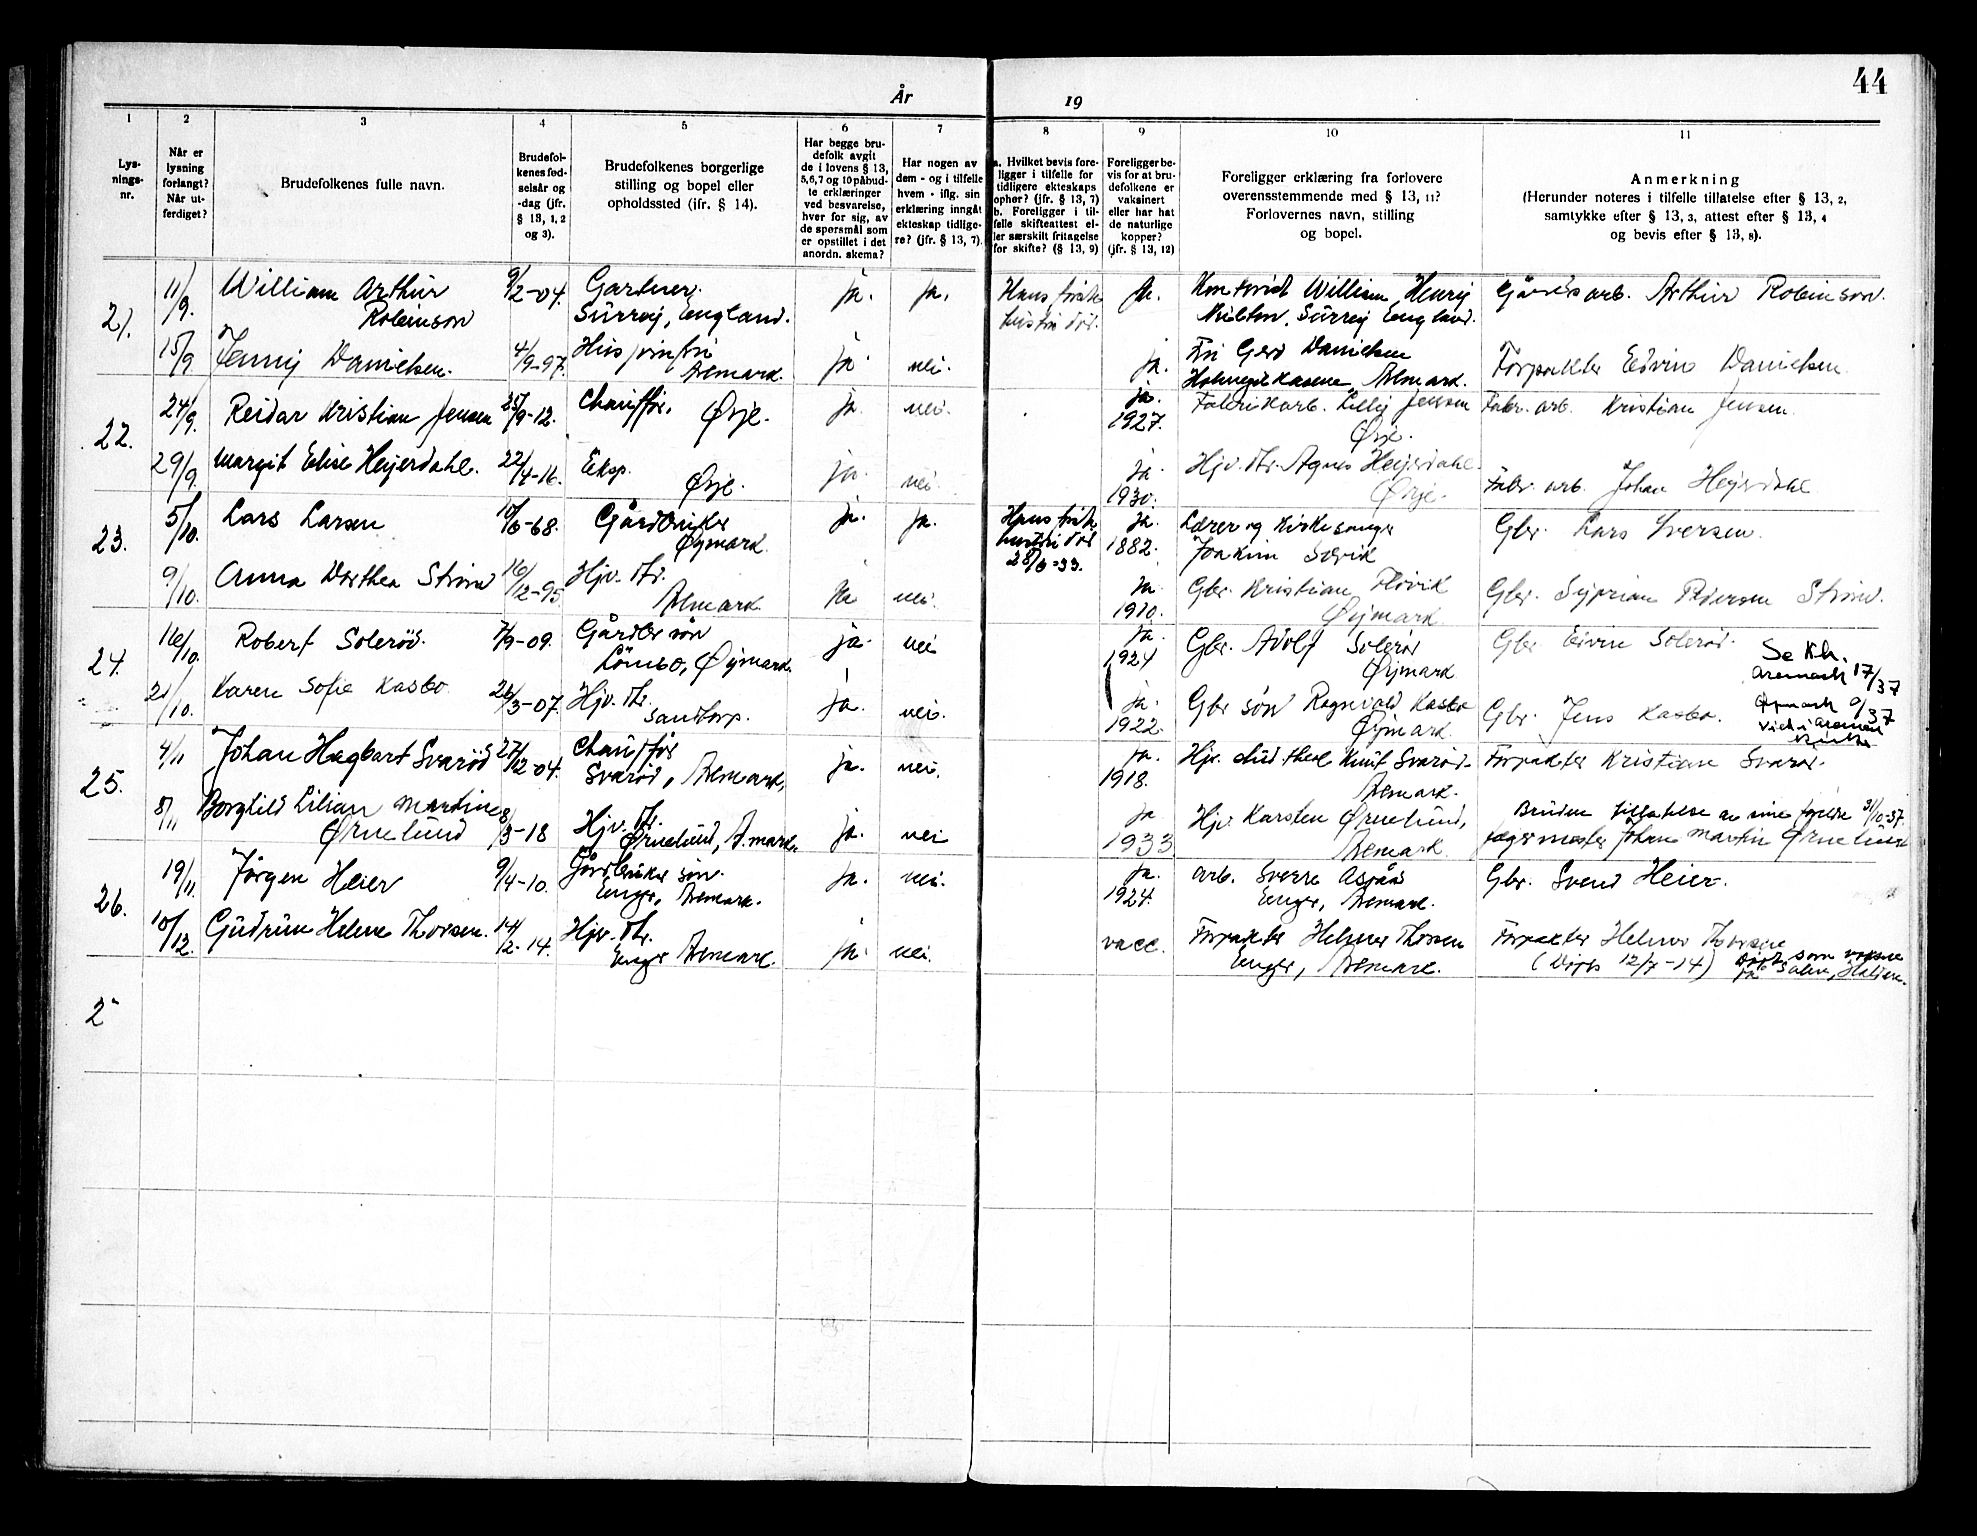 44
År
19
1
2
3
4
5
6
7
8
9
10
11
Lys-
nings-
nr.
Når er
lysning
forlangt?
Når ut-
ferdiget?
Brudefolkenes fulle navn.
Brudefol-
kenes fød-
selsår og
-dag (jfr.
§ 13, 1, 2
og 3).
Brudefolkenes borgerlige
stilling og bopel eller
opholdssted (ifr. § 14).
Har begge bru-
defolk avgit
de i lovens § 13,
5,6,7 og 10 påbud-
te erklæringer
ved besvarelse,
hver for sig, av
de spørsmål som
er opstillet i det
anordn. skema?
Har nogen av
dem - og i tilfelle
hvem - iflg. sin
erklæring inngåt
ekteskap tidlige-
re? (jfr. § 13, 7).
a. Hvilket bevis fore-
ligger i tilfelle for
tidligere ekteskaps
ophør? (jfr. § 13, 7)
b. Foreligger i til-
felle skifteattest el-
ler særskilt fritagelse
for skifte? (§ 13, 9)
Foreligger be-
vis for at bru-
defolkene er
vaksinert
eller har hat
de naturlige
kopper?
(jfr. § 13, 12)
Foreligger erklæring fra forlovere
overensstemmende med § 13, 11?
Forlovernes navn, stilling
og bopel.
Anmerkning
(Herunder noteres i tilfelle tillatelse efter § 13, 2,
samtykke efter § 13, 3, attest efter § 13, 4
og bevis efter § 13, 8).
21.
11/9. William Arthur 9/2-04. Gartner. ja. ja. Hans første ja. Kontorist William Henry Gårdsarb. Arthur Robinson.
Robinson Sürrey, England. hustru død. Milton, Sürrey England.
15/9 Jenny Danielsen. 4/9-97. Husjomfru ja nei. ja. Frk Gerd Danielsen Forpakter Edvin Danielsen
Aremark. Holmegilkasene, Aremark.
22.
24/9. Reidar Kristian Jensen 25/9-12. Chauffør, Ørje. ja. nei. ja. 1927. Fabrikkarb. Lilly Jensen Fabr. arb. Kristian Jensen.
Ørje.
29/9. Margit Elise Heyerdahl. 22/4-16. Eksp. Ørje. ja. nei. ja 1930. Hjv. dtr. Agnes Heyerdahl. Fabr. arb. Johan Heyerdahl
Ørje.
23.
5/10. Lars Larsen 10/6-68. Gårdbruker ja. ja. Hans første ja. 1882. Lærer og kirkesanger Gbr. Lars Iversen.
Øymark. hustru død 28/6-33. Joakim Solvik
9/10. Anna Dorthea Strand 16/12-95 Hjv. dtr. ja nei. ja 1910. Gbr. Kristian Flovik Gbr. Syprian Pedersen Strand.
Aremark. Øymark.
24.
16/10. Robert Solerød. 7/9-09. Gårdbr søn ja. nei ja. 1924 Gbr. Adolf Solerød Gbr Edvin Solerød. Se Kh.
Lömbo, Øymark. Øymark Aremark 17/37
21/10. Karen Sofie Kasbo 26/3-07. Hjv. dtr. ja. nei. ja. 1922. Gbr søn Ragnvald Kasbo Gbr. Jens Kasbo. Øymark 9/37
Sandtorp. Øymark. Viet i Aremark Kirke
25.
4/11 Johan Hagbart Svarød 27/12-04. Chauffør ja. nei. ja. 1918. Hjv. Knut Svarød. Forpakter Kristian Svarød.
Svarød, Aremark, Aremark.
8/11 Borghild Lilian Martine 8/3-18 Hjv. dtr. ja. nei ja 1933 Hjv Karsten Ørnelund, Bruden tillatelse av sine foreldre 31/10-37
Ørnelund Ørnelund, A.mark. Aremark. jegermester Johan Martin Ørnelund
26.
19/11. Jörgen Heier 9/4-10. Gårdbruker søn. ja. nei. ja. 1924. arb. Sverre Aspås Gbr. Svend Heier.
Enger, Aremark. Enger, Aremark.
10/12. Gudrun Helene Thorsen. 14/2-14. Hjv. dtr. ja. nei. vacc. Forpakter Helmer Thorsen Forpakter Helmer Thorsen
Enger Aremark. Enger, Aremark. (Døpt 12/7-14) Døpt som voksne
på Salem, Halden.
2